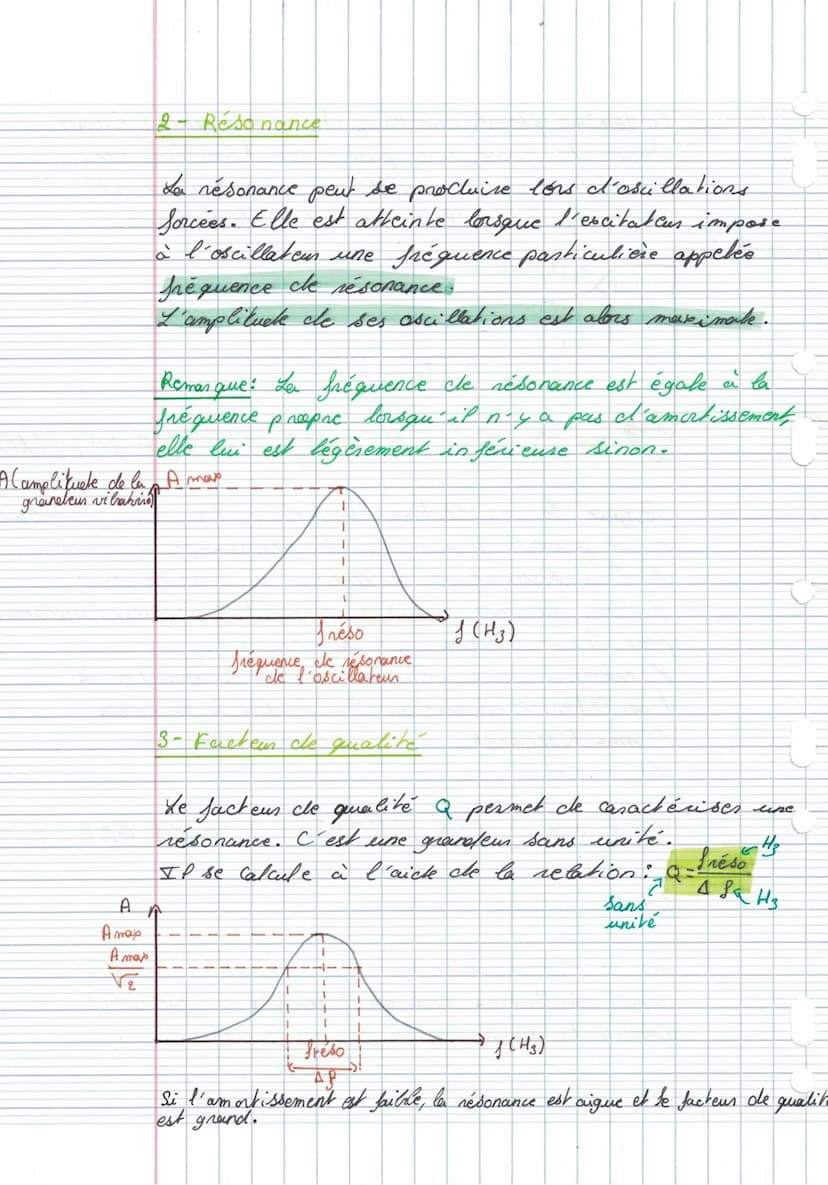 2 - Résonance
La résonance peut se produire lors d'oscillations
forcées. Elle est atteinte lorsque l'excitateur impose
à l'oscillateur une fréquence particulière appelée
fréquence de résonance.
L'amplitude de ses oscillations est alors maximale.
Remarque: La fréquence de résonance est égale à la
fréquence propre lorsqu'il n'y a pas d'amortissement,
elle lui est légèrement inférieure sinon.
A (amplitude de la
grandeur vibratoire)
A max
f réso
f (Hz)
fréquence de résonance
de l'oscillateur
3- Facteur de qualité
Le facteur de qualité Q permet de caractériser une
résonance. C'est une grandeur sans unité.
Il se calcule à l'aide de la relation: Q = f réso / Δ f
Hz
Hz
sans
unité
A
A max
A max / √2
f réso
f (Hz)
Δ f
Si l'amortissement est faible, la résonance est aigue et le facteur de qualité
est grand.